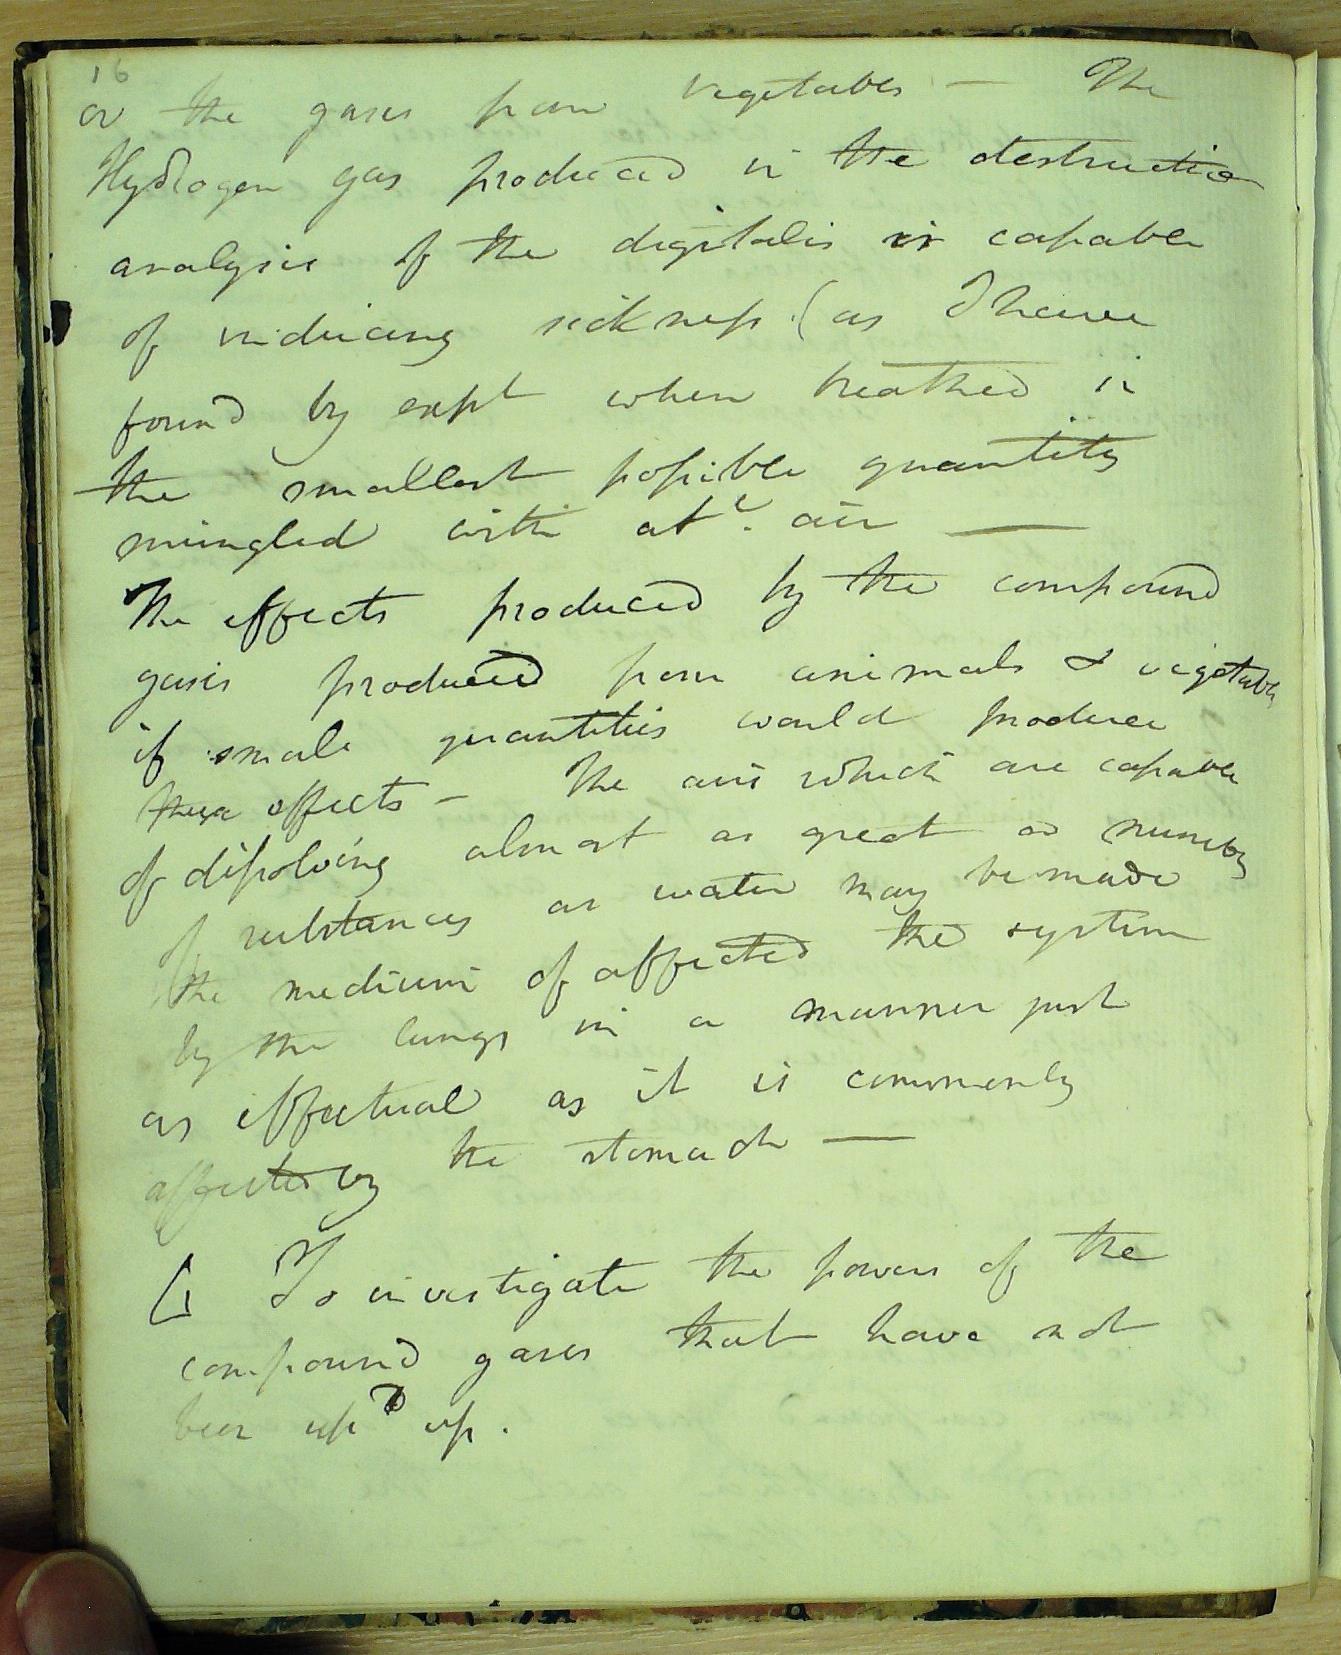 16
or the gases from vegetables — The
Hydrogen gas produced in the destructive
analysis of the digitalis is capable
of inducing sickness (as I have
found by expt when breathed in
the smallest possible quantity
mingled with atc. air —
The effects produced by the compound
gases produced from animals & vegetables
if small quantities would produce
these effects — The airs which are capable
of dissolving almost as great a number
of substances as water may be made
the medium of affected the system
by the lungs in a manner just
as effectual as it is commonly
affected by the stomach —
[ To investigate the powers of the
compound gases that have not
been up.